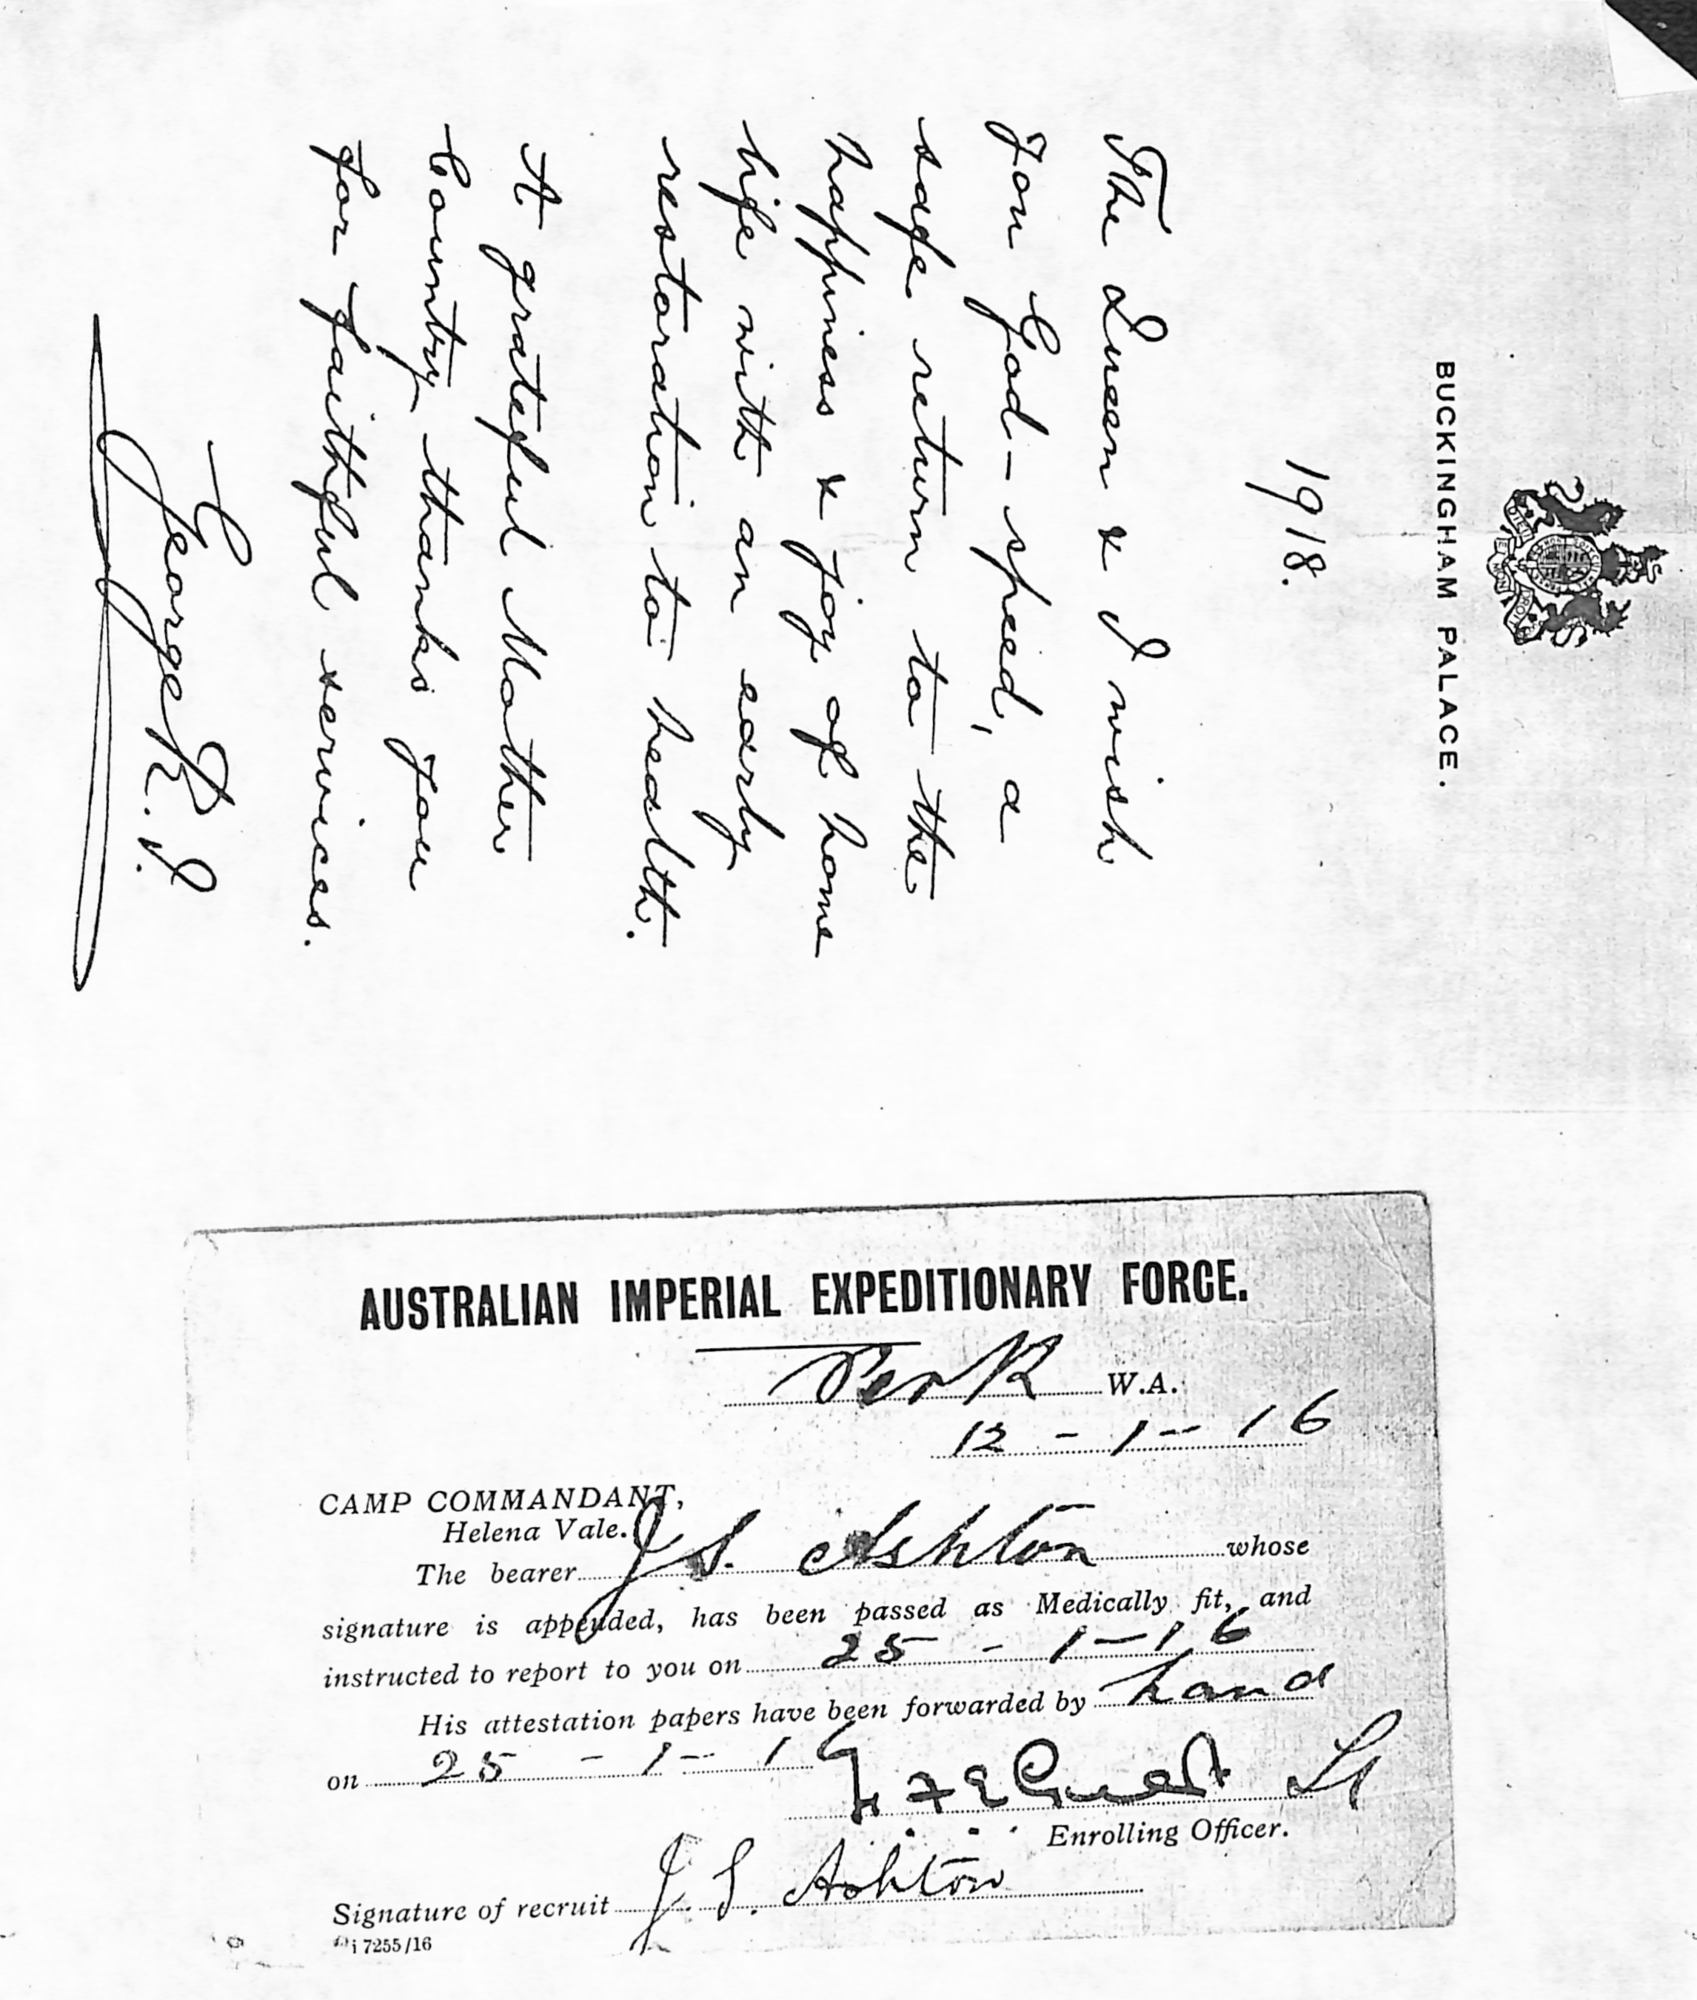 BUCKINGHAM PALACE.
1918.
The Queen & I wish
you God-speed, a
safe return to the
happiness & joy of home
life with an early
restoration to health.
A grateful Mother
Country thanks you
for faithful services.
George R.I.
AUSTRALIAN IMPERIAL EXPEDITIONARY FORCE.
Perth W.A.
12-1-16
CAMP COMMANDANT,
Helena Vale.
The bearer J S. Ashton whose
signature is appended, has been passed as Medically fit, and
instructed to report to you on 25-1-16
His attestation papers have been forwarded by hand
on 25-1-16
Lt
Enrolling Officer.
Signature of recruit J. S. Ashton
7255/16